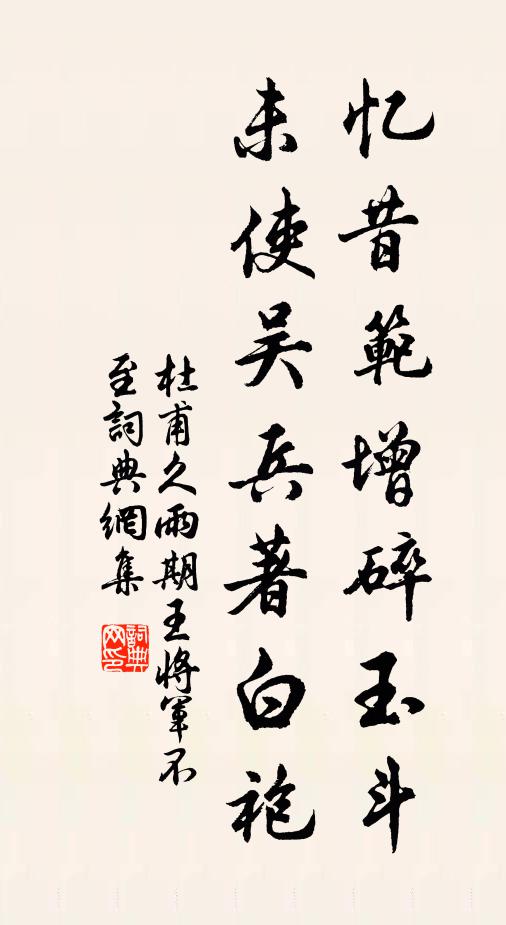 忆昔範增碎玉斗
未使吴兵著白袍
杜甫久雨期王将軍不
至詞典網集
詞典
网印